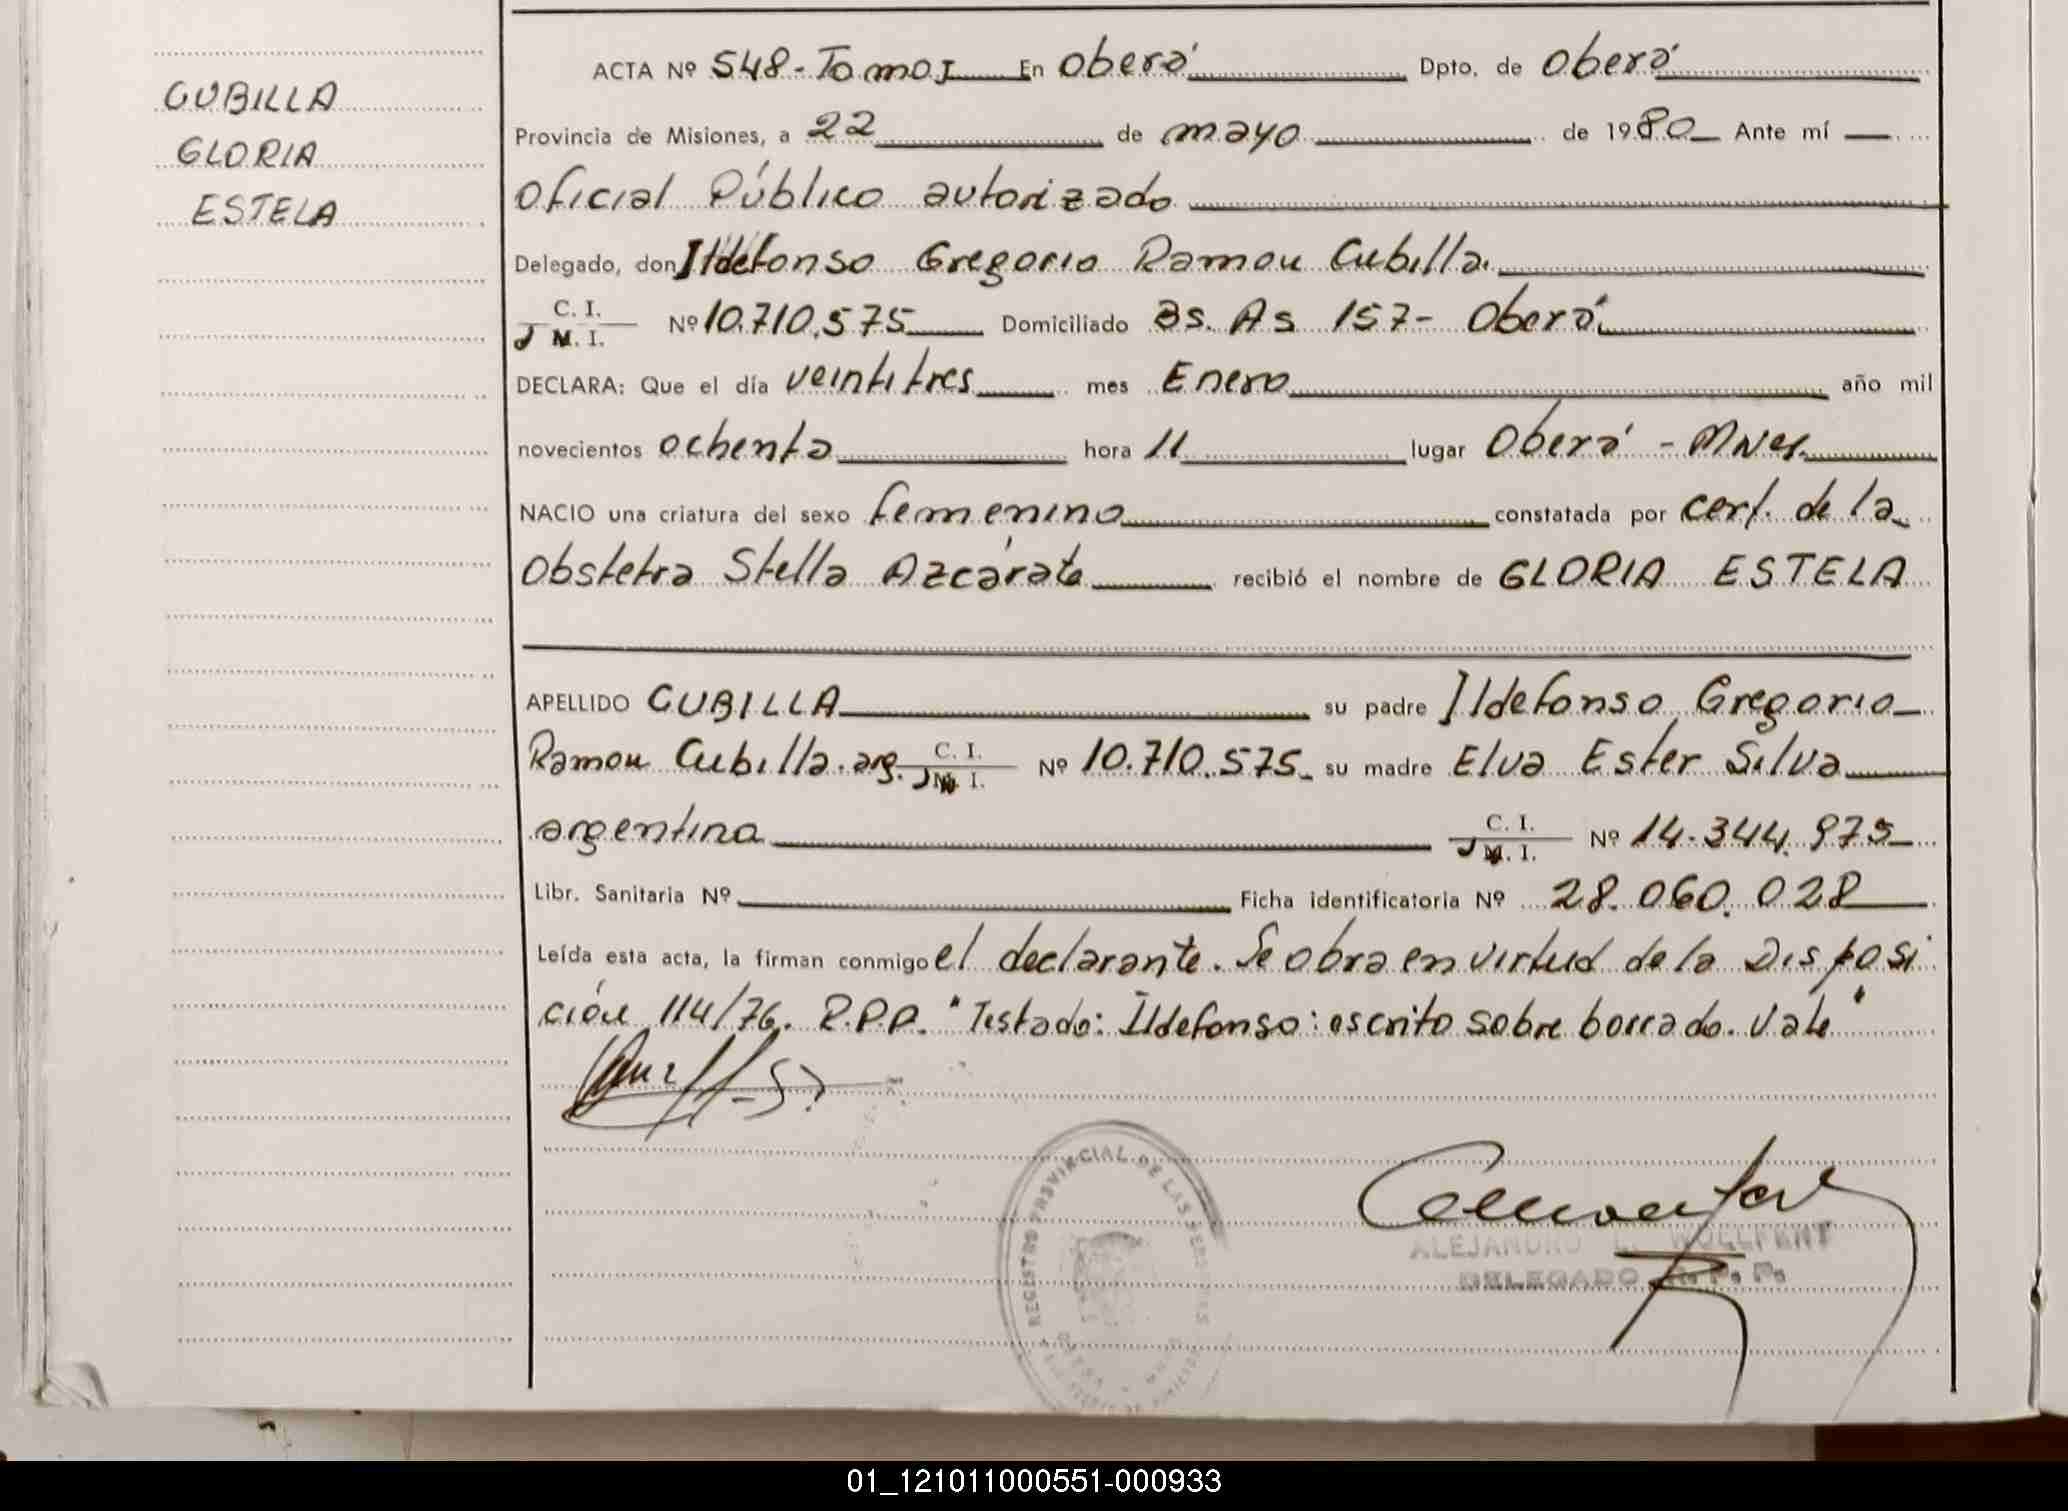 CUBILLA
GLORIA
ESTELA
ACTA Nº 548-Tomo I En Oberá Dpto. de Oberá
Provincia de Misiones, a 22 de mayo de 1980 Ante mí
Oficial Público autorizado
Delegado, don Ildefonso Gregorio Ramon Cubilla.
C. I.
M. I. Nº 10.710.575 Domiciliado Bs. As 157- Oberá
DECLARA: Que el día veintitres mes Enero año mil
novecientos ochenta hora 11 lugar Oberá - Mnes.
NACIO una criatura del sexo femenino constatada por cert. de la
Obstetra Stella Azcárate recibió el nombre de GLORIA ESTELA
APELLIDO CUBILLA su padre Ildefonso Gregorio
Ramon Cubilla. arg. C. I. M. I. Nº 10.710.575 su madre Elva Ester Silva
argentina C. I. M. I. Nº 14.344.975
Libr. Sanitaria Nº Ficha identificatoria Nº 28.060.028
Leída esta acta, la firman conmigo el declarante. Se obra en virtud de la Disposi
ción 114/76. R.P.P. "Testado: Ildefonso: escrito sobre borrado. Vale"
REGISTRO PROVINCIAL DE LAS PERSONAS
ALEJANDRO
DELEGADO R. P. P.
01_121011000551-000933